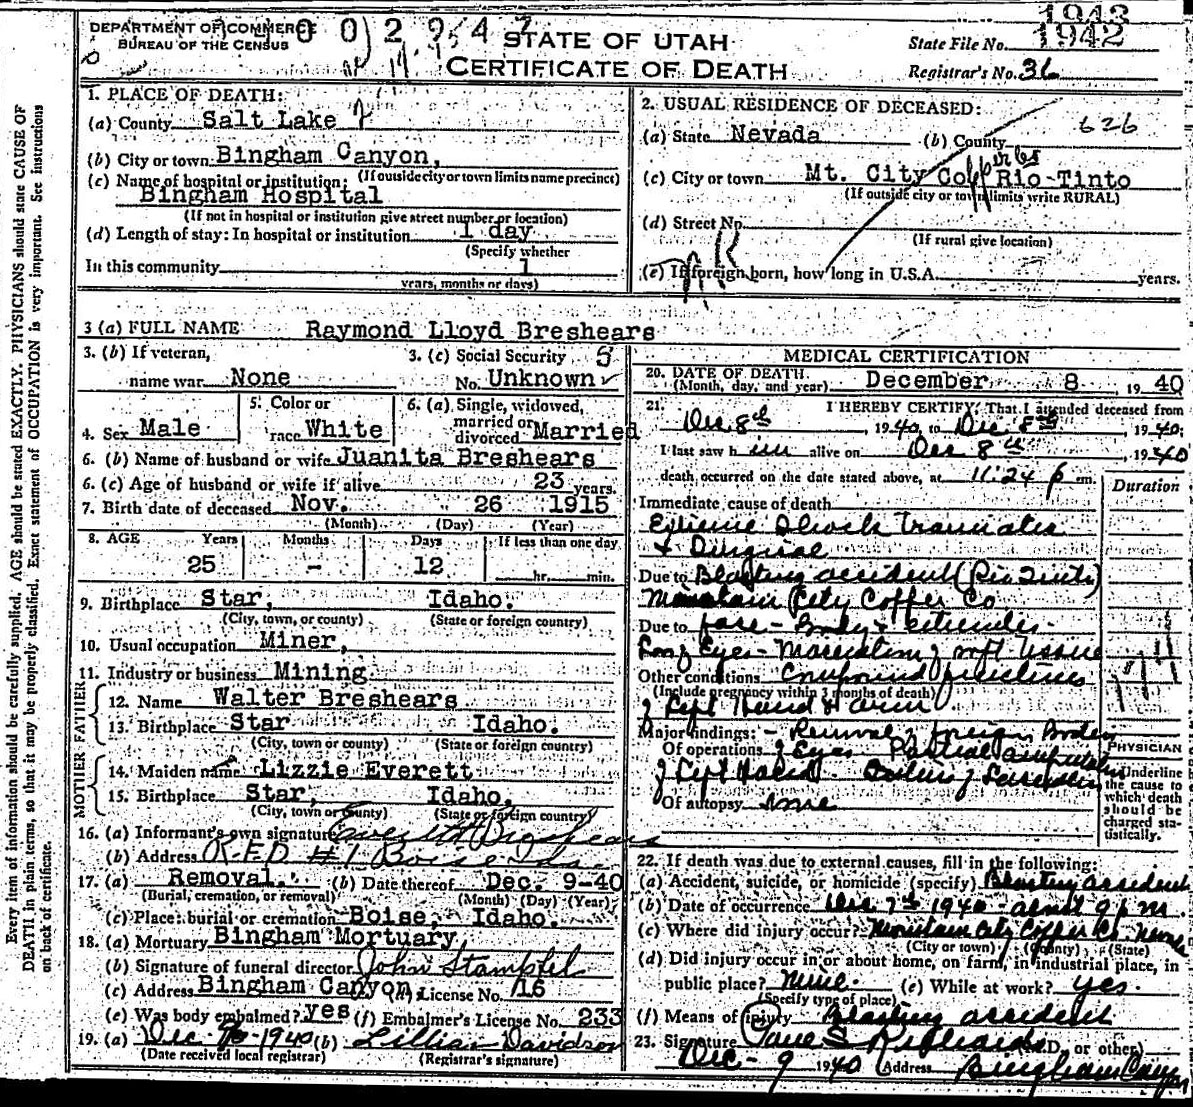 1943
DEPARTMENT OF COMMERCE
BUREAU OF THE CENSUS
STATE OF UTAH
CERTIFICATE OF DEATH
State File No. 1942
Registrar's No. 36
Every item of information should be carefully supplied. AGE should be stated EXACTLY. PHYSICIANS should state CAUSE OF
DEATH in plain terms, so that it may be properly classified. Exact statement of OCCUPATION is very important. See instructions
on back of certificate.
1. PLACE OF DEATH:
(a) County Salt Lake
(b) City or town Bingham Canyon,
(If outside city or town limits name precinct)
(c) Name of hospital or institution:
Bingham Hospital
(If not in hospital or institution give street number or location)
(d) Length of stay: In hospital or institution 1 day
(Specify whether
In this community 1
years, months or days)
2. USUAL RESIDENCE OF DECEASED:
(a) State Nevada (b) County 626
(c) City or town Mt. City Copp Rio-Tinto
(If outside city or town limits write RURAL)
(d) Street No.
(If rural give location)
(e) If foreign born, how long in U.S.A. years.
3 (a) FULL NAME Raymond Lloyd Breshears
3. (b) If veteran,
name war None
3. (c) Social Security
No. Unknown
4. Sex Male
5. Color or
race White
6. (a) Single, widowed,
married or
divorced Married
6. (b) Name of husband or wife Juanita Breshears
6. (c) Age of husband or wife if alive 23 years.
7. Birth date of deceased Nov. 26 1915
(Month) (Day) (Year)
8. AGE Years Months Days If less than one day
25 - 12 hr. min.
9. Birthplace Star, Idaho.
(City, town, or county) (State or foreign country)
10. Usual occupation Miner,
11. Industry or business Mining
FATHER
12. Name Walter Breshears
13. Birthplace Star Idaho.
(City, town or county) (State or foreign country)
MOTHER
14. Maiden name Lizzie Everett
15. Birthplace Star, Idaho,
(City, town or county) (State or foreign country)
16. (a) Informant's own signature Everett Breshears
(b) Address R.F.D #1 Boise Ida.
17. (a) Removal. (b) Date thereof Dec. 9-40
(Burial, cremation, or removal) (Month) (Day) (Year)
(c) Place: burial or cremation Boise, Idaho.
18. (a) Mortuary Bingham Mortuary,
(b) Signature of funeral director John Stampfel
(c) Address Bingham Canyon, License No. 116
(e) Was body embalmed? yes (f) Embalmer's License No. 233
19. (a) Dec. 1940 (b) Lillian Davidson
(Date received local registrar) (Registrar's signature)
MEDICAL CERTIFICATION
20. DATE OF DEATH
(Month, day, and year) December 8 1940
21. I HEREBY CERTIFY, That I attended deceased from
Dec 8th 1940 to Dec 8th 1940;
I last saw him alive on Dec 8th, 1940
death occurred on the date stated above, at 11:24 p m.
Duration
Immediate cause of death
Extreme Shock Traumatic
& Surgical
Due to Blasting accident (Rio Tinto)
Mountain City Copper Co
Due to face - Body & extremities
Eyes - Maceration of soft tissue
Other conditions Compound fractures
(Include pregnancy within 3 months of death)
of Left Hand & arm
Major findings: - Removal of foreign Bodies
Of operations Eyes Partial amputation
of Left Hand
Of autopsy none
PHYSICIAN
Underline
the cause to
which death
should be
charged sta-
tistically.
22. If death was due to external causes, fill in the following:
(a) Accident, suicide, or homicide (specify) Blasting accident
(b) Date of occurrence Dec 7th 1940 - about 9 p m.
(c) Where did injury occur? Mountain City Copper Co. Nevada
(City or town) (County) (State)
(d) Did injury occur in or about home, on farm, in industrial place, in
public place? Mine. (e) While at work? yes.
(Specify type of place)
(f) Means of injury Blasting accident
23. Signature Paul S Richards (M.D. or other)
Dec - 9 1940 (Address Bingham Canyon